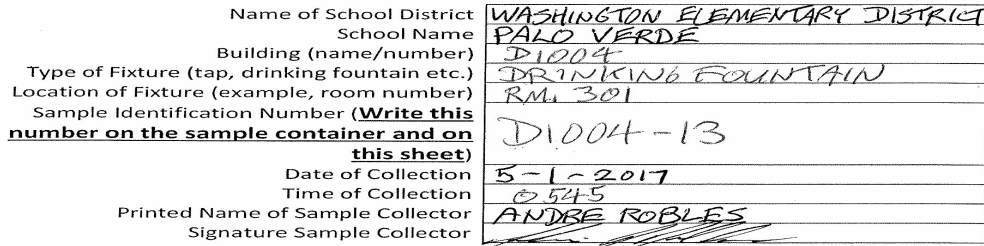 Name of School District WASHINGTON ELEMENTARY DISTRICT
School Name PALO VERDE
Building (name/number) D1004
Type of Fixture (tap, drinking fountain etc.) DRINKING FOUNTAIN
Location of Fixture (example, room number) RM. 301
Sample Identification Number (Write this
number on the sample container and on D1004-13
this sheet)
Date of Collection 5-1-2017
Time of Collection 0545
Printed Name of Sample Collector ANDRE ROBLES
Signature Sample Collector